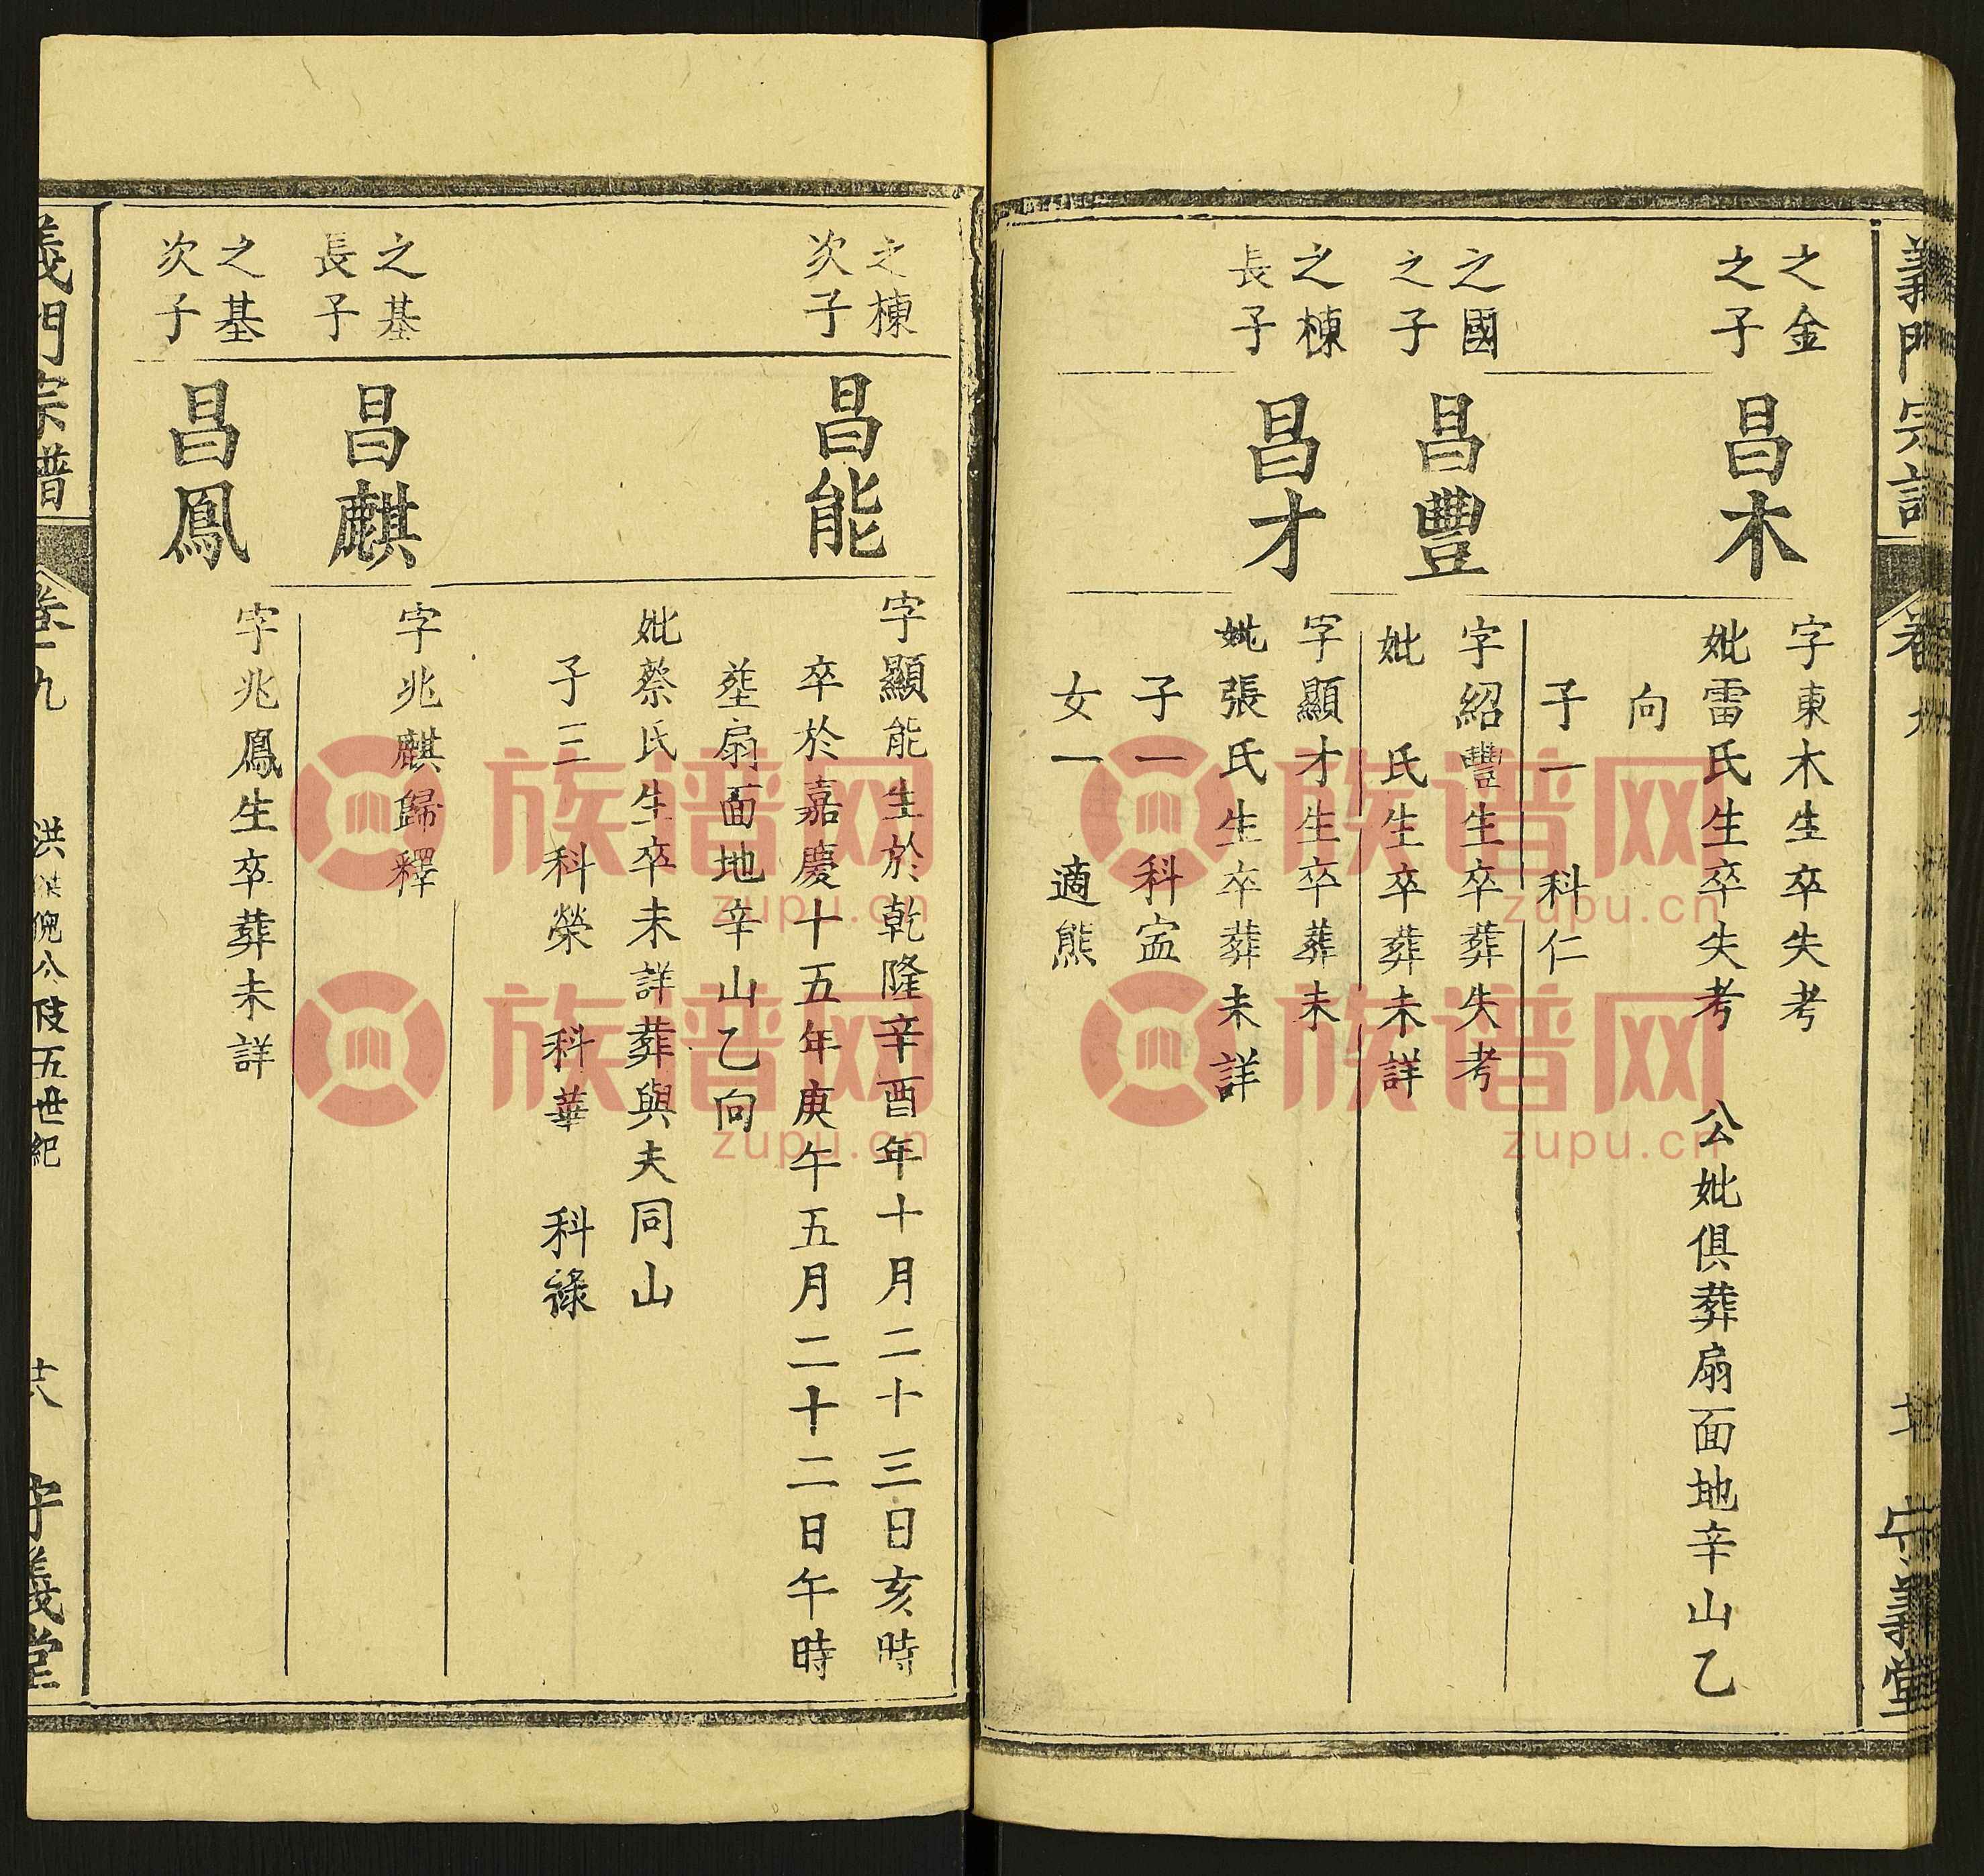 之金
之子
昌木
字東木生卒失考
妣雷氏生卒失考　公妣俱葬扇面地辛山乙
向
子一　科仁
之國
之子
昌豐
字紹豐生卒葬失考
妣　氏生卒葬未詳
之棟
長子
昌才
字顯才生卒葬未
妣張氏生卒葬未詳
子一　科寍
女一　適熊
之棟
次子
昌能
字顯能生於乾隆辛酉年十月二十三日亥時
卒於嘉慶十五年庚午五月二十二日午時
塟扇面地辛山乙向
妣蔡氏生卒未詳葬與夫同山
子三　科榮　科華　科祿
之基
長子
昌麒
字兆麒歸釋
之基
次子
昌鳳
字兆鳳生卒葬未詳
義門宗譜
卷十九
公伎五世紀
義堂
族谱网
zupu.cn
族谱网
zupu.cn
族谱网
zupu.cn
族谱网
zupu.cn